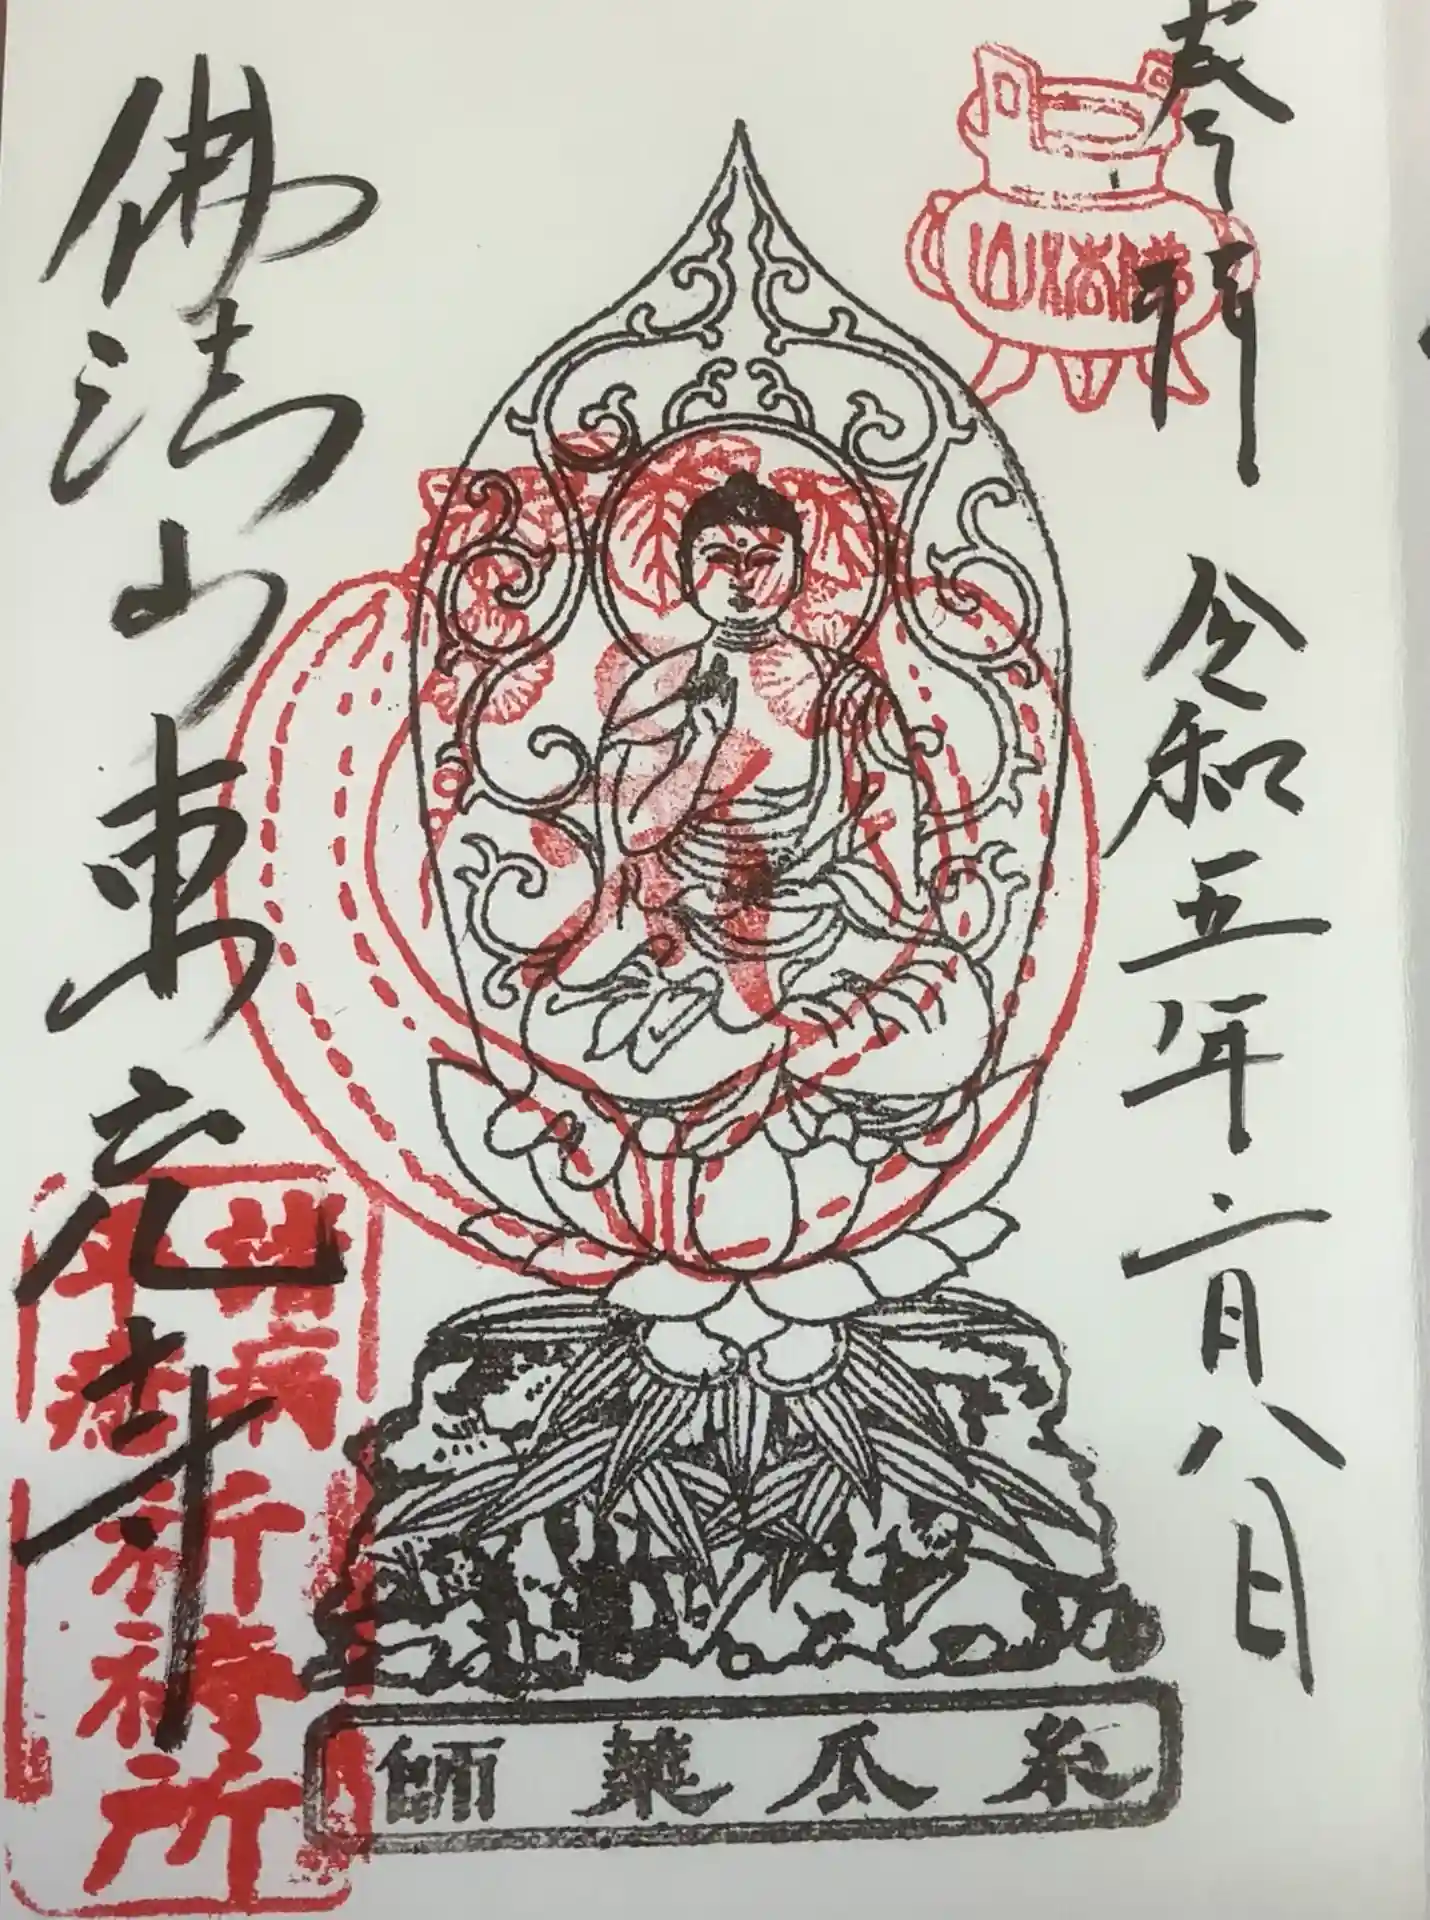 奉拝 令和五年二月八日
佛法山
糸瓜薬師
佛法山東光寺
諸病
平癒
祈禱所